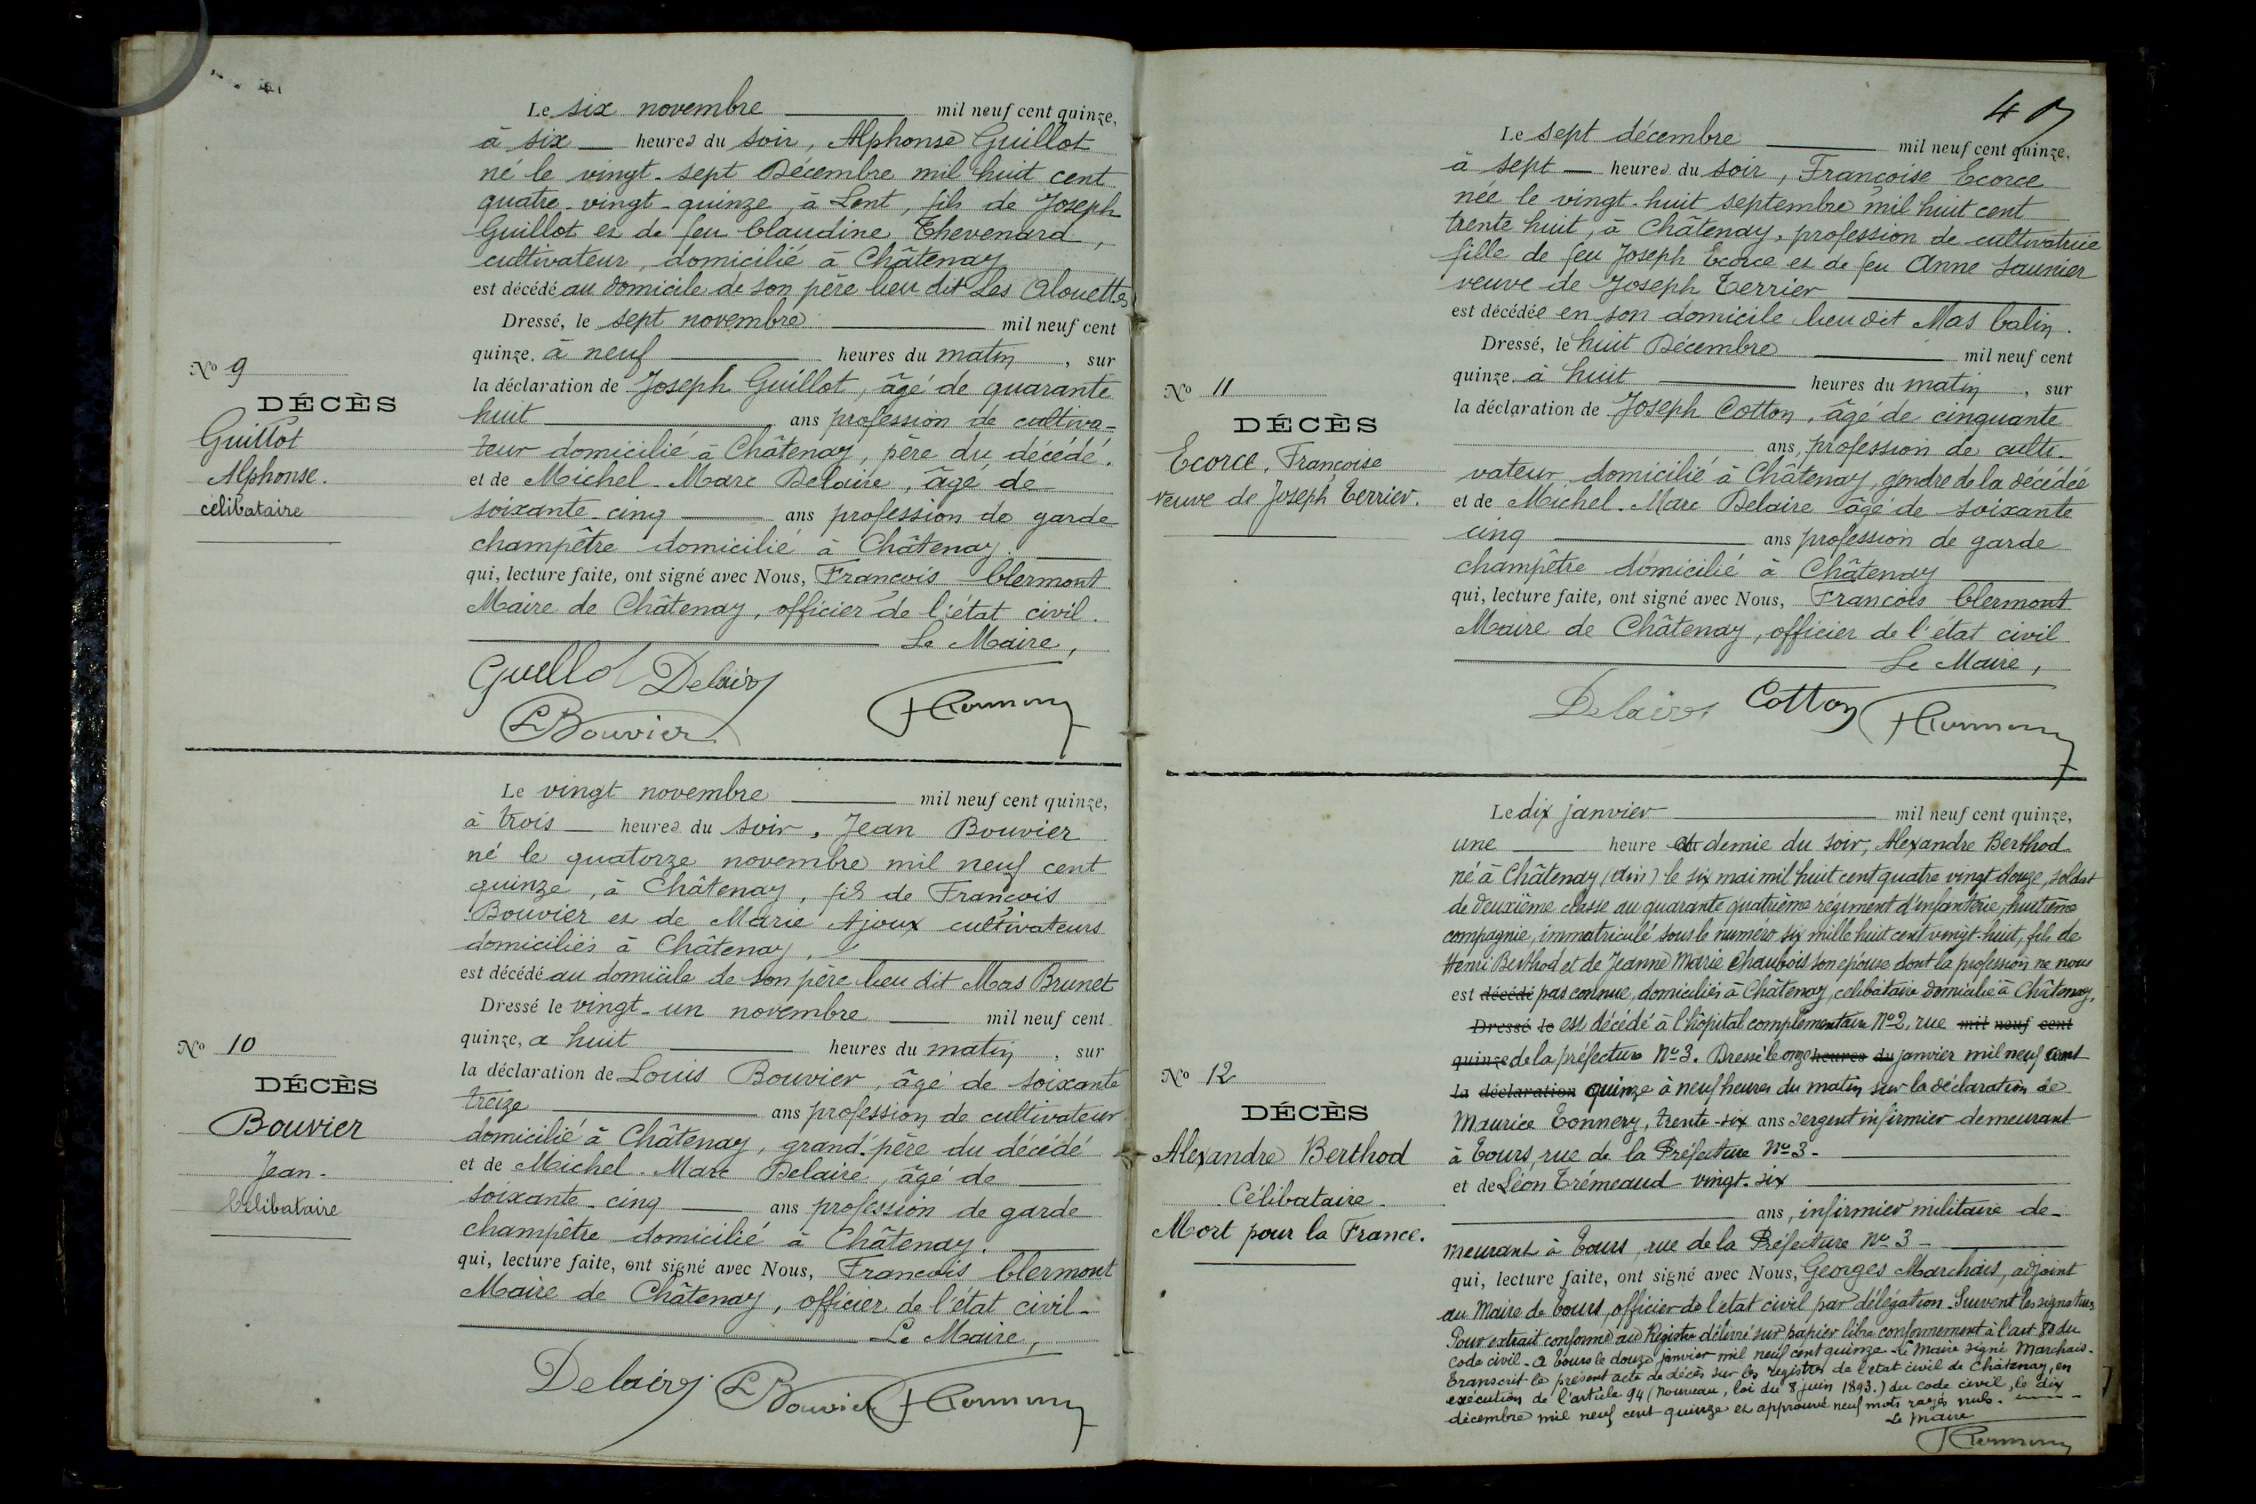 Le six novembre mil neuf cent quinze,
à six heures du soir, Alphonse Guillot
né le vingt-sept Décembre mil huit cent
quatre-vingt-quinze, à Lent, fils de Joseph
Guillot et de feu Claudine Thevenard,
cultivateur, domicilié à Châtenay
est décédé au domicile de son père lieu dit Les Alouettes
Dressé, le sept novembre mil neuf cent
quinze, à neuf heures du matin, sur
la déclaration de Joseph Guillot, âgé de quarante
huit ans profession de cultiva-
teur domicilié à Châtenay, père du décédé.
et de Michel-Marc Delaire, âgé de
soixante-cinq ans profession de garde
champêtre domicilié à Châtenay.
qui, lecture faite, ont signé avec Nous, François Clermont
Maire de Châtenay, officier de l'état civil.
Le Maire,
Guillot Delaire
L Bouvier F Clermont
No 9
DÉCÈS
Guillot
Alphonse.
célibataire
Le vingt novembre mil neuf cent quinze,
à trois heures du soir, Jean Bouvier
né le quatorze novembre mil neuf cent
quinze, à Châtenay, fils de François
Bouvier et de Marie Ajoux cultivateurs
domiciliés à Châtenay,
est décédé au domicile de son père lieu dit Mas Brunet
Dressé le vingt-un novembre mil neuf cent
quinze, a huit heures du matin, sur
la déclaration de Louis Bouvier, âgé de soixante
treize ans profession de cultivateur
domicilié à Châtenay, grand-père du décédé
et de Michel-Marc Delaire, âgé de
soixante-cinq ans profession de garde
champêtre domicilié à Châtenay.
qui, lecture faite, ont signé avec Nous, François Clermont
Maire de Châtenay, officier de l'état civil-
Le Maire,
Delaire L Bouvier F Clermont
No 10
DÉCÈS
Bouvier
Jean-
Célibataire
47
Le sept décembre mil neuf cent quinze,
à sept heures du soir, Françoise Ecorce
née le vingt-huit septembre mil huit cent
trente huit, à Châtenay, profession de cultivatrice
fille de feu Joseph Ecorce et de feu Anne Saunier
veuve de Joseph Terrier
est décédée en son domicile lieu dit Mas Calin.
Dressé, le huit Décembre mil neuf cent
quinze, à huit heures du matin, sur
la déclaration de Joseph Cotton, âgé de cinquante
ans, profession de culti-
vateur domicilié à Châtenay, gendre de la décédée
et de Michel-Marc Delaire âgé de soixante
cinq ans profession de garde
champêtre domicilié à Châtenay
qui, lecture faite, ont signé avec Nous, François Clermont
Maire de Châtenay, officier de l'état civil
Le Maire,
Delaire Cotton F Clermont
No 11
DÉCÈS
Ecorce, Françoise
veuve de Joseph Terrier.
Le dix janvier mil neuf cent quinze,
une heure et demie du soir, Alexandre Berthod
né à Châtenay (Ain) le six mai mil huit cent quatre vingt douze, soldat
de deuxième classe au quarante quatrième régiment d'infanterie, huitième
compagnie, immatriculé sous le numéro six mille huit cent vingt-huit, fils de
Henri Berthod et de Jeanne Marie Chaubois son épouse dont la profession ne nous
est décédé pas connue, domiciliés à Châtenay, célibataire domicilié à Châtenay,
Dressé le est décédé à l'hôpital complémentaire No 2, rue mil neuf cent
quinze de la préfecture No 3. Dressé le onze heures du janvier mil neuf cent
la déclaration quinze à neuf heures du matin sur la déclaration de
Maurice Tonnery, trente-six ans sergent infirmier demeurant
à Tours, rue de la Préfecture No 3-
et de Léon Trémeaud vingt-six
ans, infirmier militaire de-
meurant à Tours, rue de la Préfecture No 3-
qui, lecture faite, ont signé avec Nous, Georges Marchais, adjoint
au Maire de Tours, officier de l'état civil par délégation. Suivent les signatures
Pour extrait conforme au Registre délivré sur papier libre conformément à l'art 80 du
code civil - A Tours le douze janvier mil neuf cent quinze - Le Maire signé Marchais-
Transcrit le présent acte de décès sur les registres de l'état civil de Châtenay, en
exécution de l'article 94 (nouveau, loi du 8 juin 1893.) du code civil, le dix
décembre mil neuf cent quinze et approuvé neuf mots rayés nuls.
Le Maire
F Clermont
No 12
DÉCÈS
Alexandre Berthod
Célibataire.
Mort pour la France.